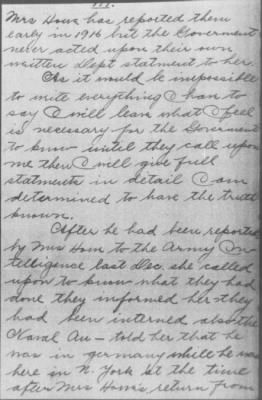 III.
Mrs Houx has reported them
early in 1916 but the Government
never acted upon their own
written Dept statment to her.
As it would be impossible
to write everything I han to
say I will lean what I feel
is necessary for the Goverment
to know until they call upon
me then I will give full
statments in detail I am
determined to have the truth
known.
After he had been reported
by Mrs Houx to the Army In-
telligence last Dec. she called
upon to know what they had
done they informed her they
had been interned also the
Naval Au- told her that he
was in germany while he was
here in N. York at the time
after Mrs return from